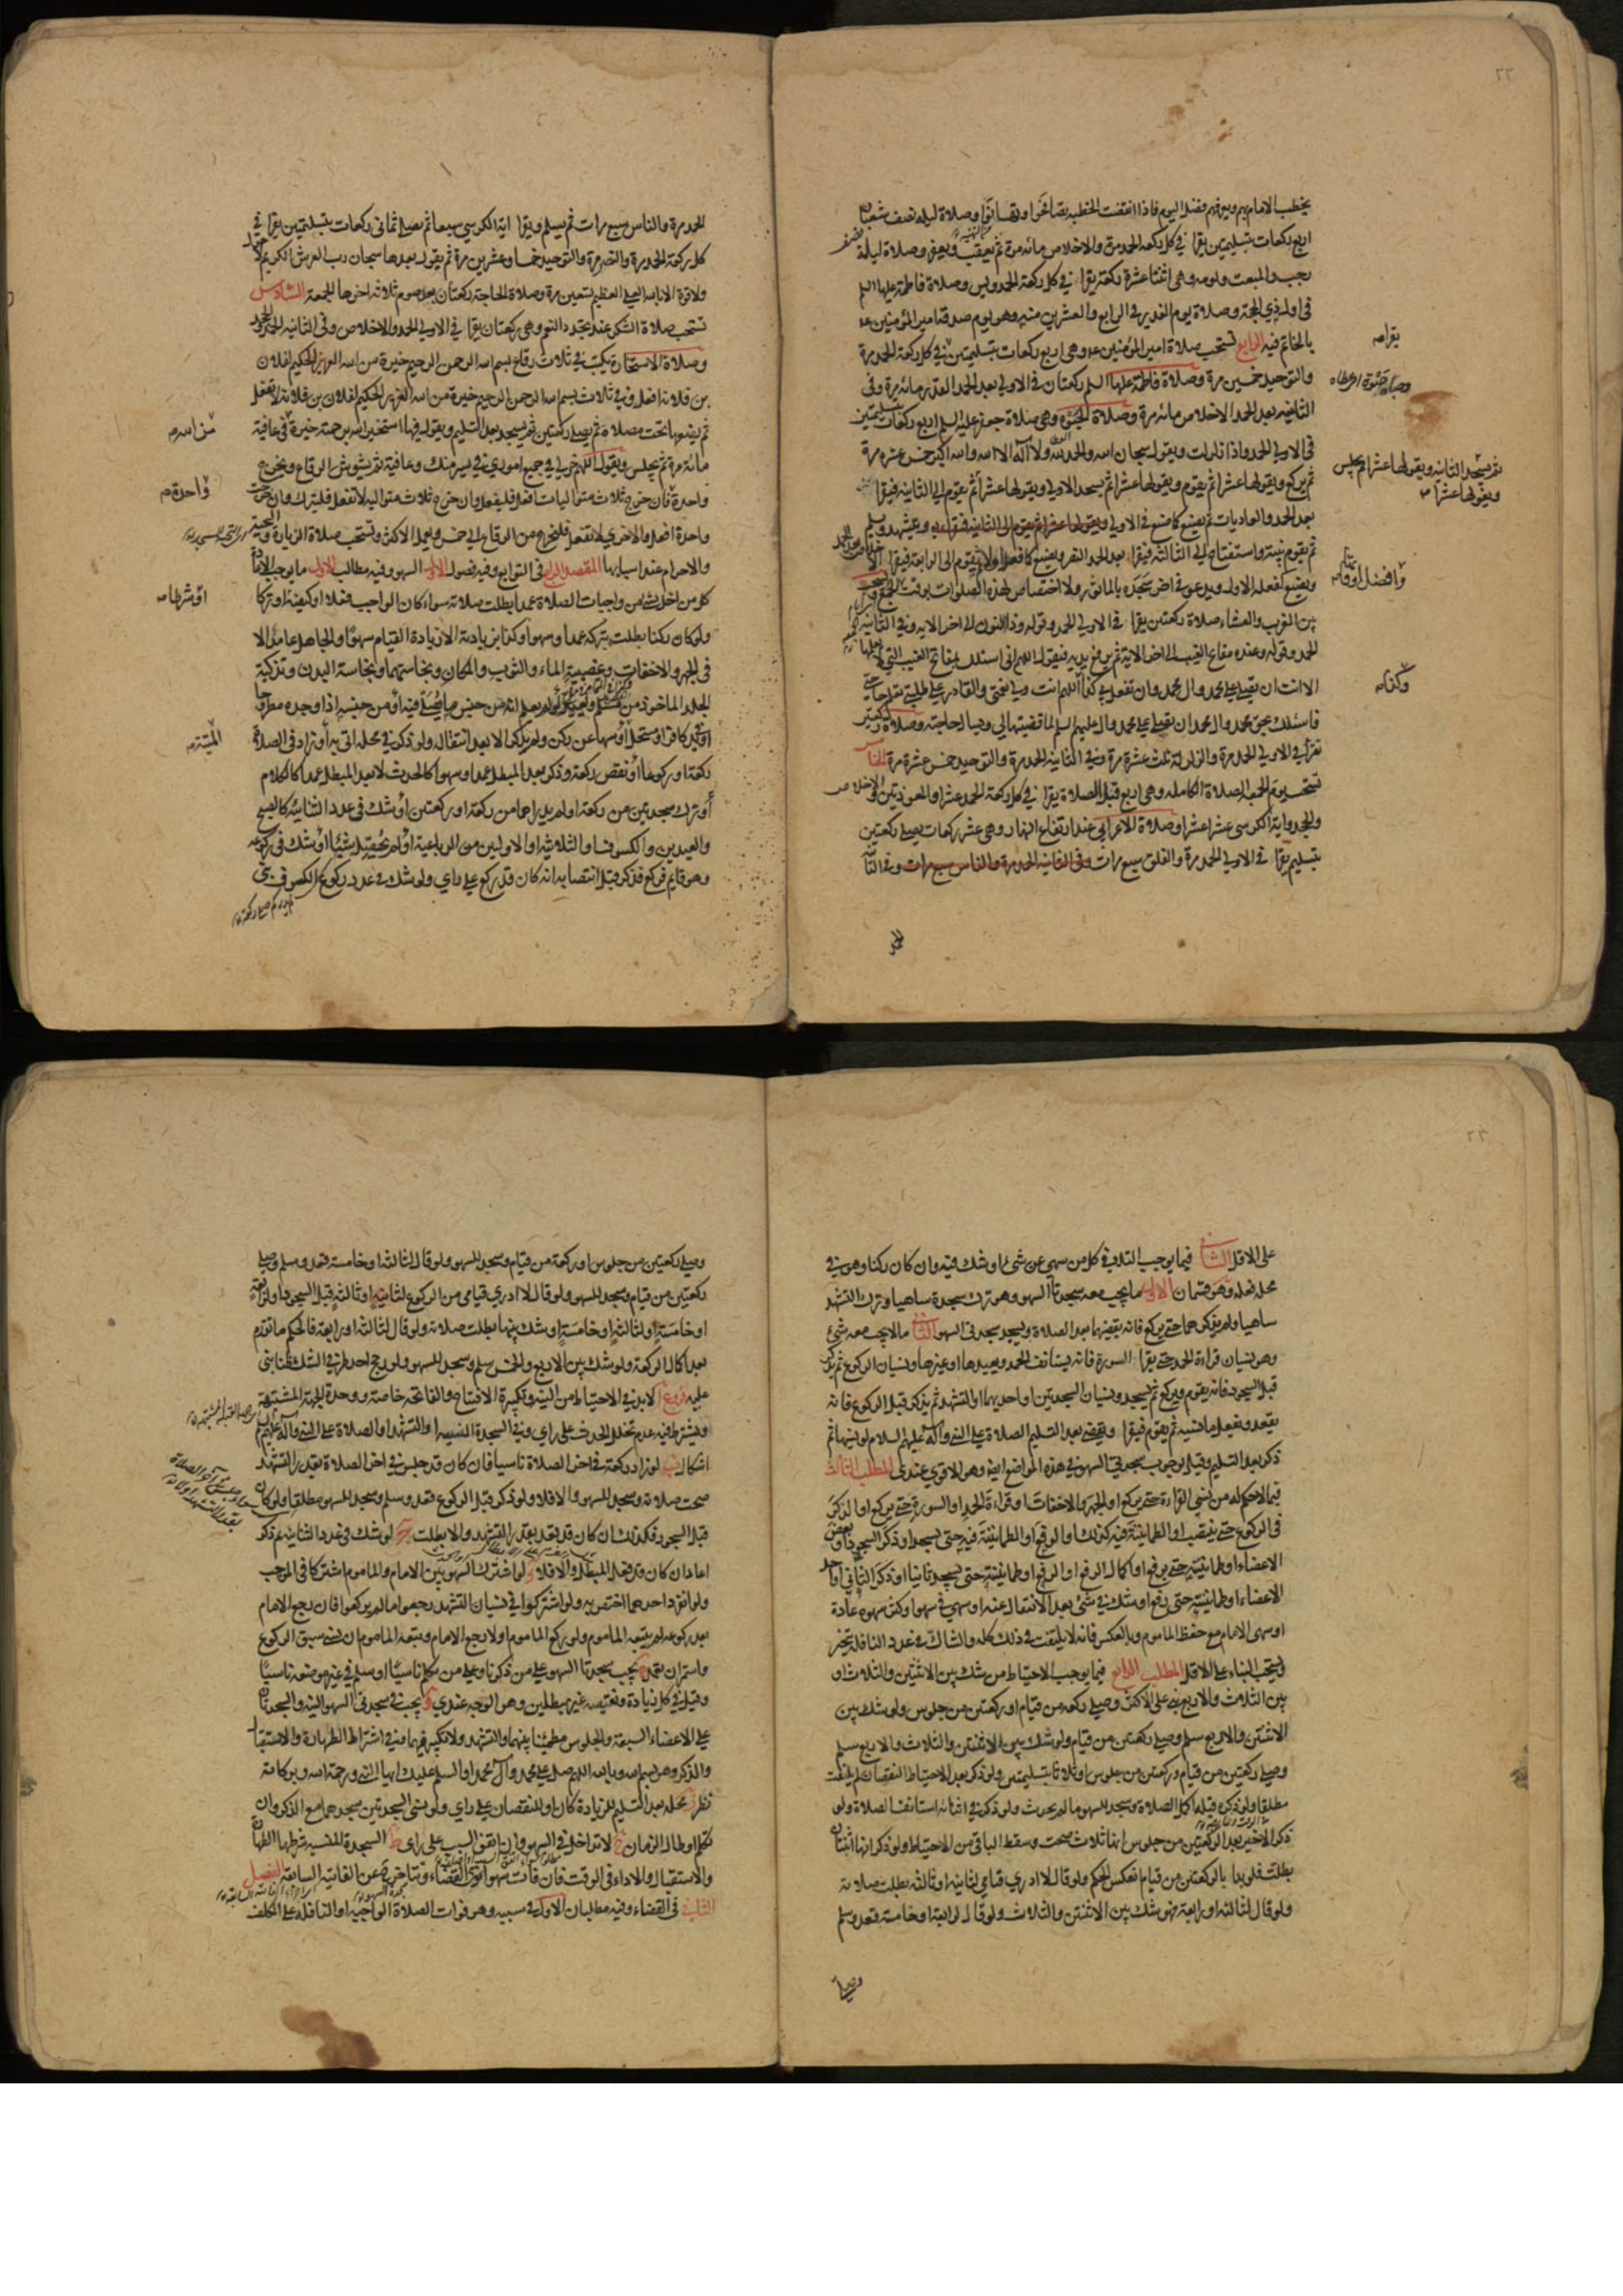 ٢٢
يخطب الامام بهم ويعرفهم فضل اليوم فاذا انقضت الخطبه تصافحوا وتهانوا وصلاة ليله نصف شعبان
اربع ركعات بتسليمتين يقرا في كل ركعه الحمد مرة والاخلاص مائه مرة ثم يعقب ويعفر وصلاة ليلة نصف
رجب والمبعث ويومه وهي اثنتا عشرة ركعة يقرا في كل ركعة الحمد ويس وصلاة فاطمة عليها السلم
في اول ذي الحجة وصلاة يوم الغدير في الرابع والعشرين منه وهو يوم صدقة امير المؤمنين ع
بالخاتم فيه الرابع تستحب صلاة امير المؤمنين ع وهي اربع ركعات بتسليمتين في كل ركعة الحمد مرة
والتوحيد خمسين مرة وصلاة فاطمة عليها السلم ركعتان في الاولي بعد الحمد القدر مائه مرة وفي
الثانيه بعد الحمد الاخلاص مائه مرة وصلاة الحبوة وهي صلاة جعفر عليه السلم اربع ركعات بتسليمتين
في الاولي الحمد واذا زلزلت ويقول سبحان الله والحمد لله ولا اله الا الله والله اكبر خمس عشره مرة
ثم يركع ويقولها عشرا ثم يقوم ويقولها عشرا ثم يسجد الاولي ويقولها عشرا ثم يقوم الي الثانيه فيقرا
بعد الحمد والعاديات ثم يصنع كما صنع في الاولي ويتشهد ويسلم
ثم يقوم بنية واستفتاح الي الثالثه فيقرا بعد الحمد النصر ويصنع كما فعل اولا ثم يقوم الى الرابعة فيقرا
ويصنع كفعله الاول ويدعو في اخر سجدة بالماثور ولا اختصاص لهذه الصلوات بوقت
بين المغرب والعشاء صلاة ركعتين يقرا في الاولي الحمد وقوله وذا النون الي اخر الايه وفي الثانيه
الحمد وقوله وعنده مفاتح الغيب الي اخر الاية ثم يرفع يديه فيقول اللهم اني اسئلك بمفاتح الغيب التي لا يعلمها
الا انت ان تصلي علي محمد وال محمد وان تفعل بي كذا اللهم انت ولي نعمتي والقادر علي طلبتي تعلم حاجتي
فاسئلك بحق محمد وال محمد ان تصلي علي محمد وال عليهم السلم لما قضيتها لي ويسال حاجته وصلاة ركعتين
تقرأ في الاولي الحمد مرة والزلزلة ثلث عشرة مرة وفي الثانية الحمد مرة والتوحيد خمس عشرة مرة الخامس
تستحب يوم الجمعه الصلاة الكامله وهي اربع قبل الصلاة يقرا في كل ركعة الحمد عشرا والمعوذتين والاخلاص
والجحد واية الكرسي عشرا عشرا وصلاة الاعرابي عند ارتفاع النهار وهي عشر ركعات يصلي ركعتين
بتسليم يقرا في الاولي الحمد مرة والفلق سبع مرات وفي الثانيه الحمد مرة والناس سبع مرات وفي
يقرا صه
ثم يسجد الثانيه ويقولها عشرا ثم يجلس
ويقولها عشرا
وافضل اوقاته
وكذا
الحمد مرة والناس سبع مرات ثم يسلم ويقرا اية الكرسي سبعا ثم يصلي ثماني ركعات بتسليمتين يقرا في
كل ركعة الحمد مرة والنصر مرة والتوحيد خمسا وعشرين مرة ثم يقول بعدها سبحان رب العرش الكريم لا حول
ولا قوة الا بالله العلي العظيم سبعين مرة وصلاة الحاجة ركعتان بعد صوم ثلاثه اخرها الجمعة السادس
تستحب صلاة الشكر عند تجدد النعم وهي ركعتان يقرا في الاولي الحمد والاخلاص وفي الثانيه الحمد والجحد
وصلاة الاستخارة يكتب في ثلاث رقاع بسم الله الرحمن الرحيم خيرة من الله العزيز الحكيم لفلان
بن فلانه افعل وفي ثلاث بسم الله الرحمن الرحيم خيرة من الله العزيز الحكيم لفلان بن فلانه لا تفعل
ثم يضعها تحت مصلاه ثم يصلي ركعتين ثم يسجد بعد التسليم ويقول فيها استخير الله برحمته خيرة في عافية
مائة مرة ثم يجلس ويقول اللهم خر لي في جميع اموري في يسر منك وعافية ثم يشوش الرقاع ويخرج
واحدة فان خرج ثلاث متواليات افعل فليفعل وان خرج ثلاث متواليه لا تفعل فليترك وان خرجت
واحدة افعل والاخري لا تفعل فليخرج من الرقاع الي خمس ويعمل الاكثر وتستحب صلاة الزيارة والتحية
والاحرام عند اسبابها المقصد الرابع في التوابع وفيه فصول الاول في السهو وفيه مطالب الاول ما يوجب الاعادة
كل من اخل بشئ من واجبات الصلاة عمدا بطلت صلاته سواء كان الواجب فعلا او كيفية او تركا
ولو كان ركنا بطلت بتركه عمدا وسهوا وكذا بزيادته الا زيادة القيام سهوا والجاهل عامد الا
في الجهر والاخفات وغصبية الماء والثوب والمكان ونجاستهما ونجاسة البدن وتذكية
الجلد الماخوذ من مسلم
او في يد كافر او مستحل او سها عن ركن ولم يذكر الا بعد انتقاله ولو ذكر في محله اتي به او زاد في الصلاة
ركعة او ركوعا او نقص ركعة وذكر بعد المبطل عمدا وسهوا كالحدث لا بعد المبطل عمدا كالكلام
أو ترك سجدتين من ركعة او لم يدر اهما من ركعة او ركعتين او شك في عدد الثنائيه كالصبح
والعيدين والكسوف او الثلاثيه او الاوليين من الرباعية او لم يحصل شيئا او شك في ركوعه
وهو قايم فركع فذكر قبل انتصابه انه كان قد ركع علي راي ولو شك في عدد ركوع الكسوف بني
من الله
واحدة
او شرطا
الميتة
٢٣
على الاقل الثاني فيما يوجب التلافي كل من سهي عن شئ او شك فيه وان كان ركنا وهو في
محله فعله وهو قسمان الاول ما يجب معه سجدتا السهو وهو ترك سجدة ساهيا وترك التشهد
ساهيا ولم يذكرهما حتي يركع فانه يقضيهما بعد الصلاة ويسجد سجدتي السهو الثاني ما لا يجب معه شئ
وهو نسيان قراءة الحمد حتي يقرا السورة فانه يستانف الحمد ويعيدها او غيرها ونسيان الركوع ثم يذكر
قبل السجود فانه يقوم ويركع ثم يسجد ونسيان السجدتين او احديهما او التشهد ثم يذكر قبل الركوع فانه
يقعد ويفعل ما نسيه ثم يقوم فيقرا ويقضي بعد التسليم الصلاة علي النبي وآله عليهم السلام لو نسيها ثم
ذكر بعد التسليم وقيل بوجوب سجدتي السهو في هذه المواضع ايضا وهو الاقوي عندي المطلب الثالث
فيما لا حكم له من نسي القراءة حتي يركع او الجهر والاخفات او قراءة الحمد او السورة حتي يركع او الذكر
في الركوع حتي ينتصب او الطمانينة فيه كذلك او الرفع او الطمانينة فيه حتي يسجد او ذكر السجود او بعض
الاعضاء او طمانينته حتي يرفع او اكمال الرفع او الرفع او طمانينته حتي يسجد ثانيا او ذكر الثاني او احد
الاعضاء او طمانينته حتي رفع او شك في شئ بعد الانتقال عنه او سهي في سهو او كثر سهوه عادة
او سهي الامام مع حفظ الماموم وبالعكس فانه لا يلتفت في ذلك كله والشاك في عدد النافلة يتخير
ويستحب البناء علي الاقل المطلب الرابع فيما يوجب الاحتياط من شك بين الاثنتين والثلاث او
بين الثلاث والاربع بني على الاكثر وصلي ركعه من قيام او ركعتين من جلوس ولو شك بين
الاثنتين والاربع سلم وصلي ركعتين من قيام ولو شك بين الاثنتين والثلاث والاربع سلم
وصلي ركعتين من قيام وركعتين من جلوس او ثلاثا بتسليمتين ولو ذكر بعد الاحتياط النقصان لم يلتفت
مطلقا ولو ذكره قبله اكمل الصلاة وسجد للسهو ما لم يحدث ولو ذكر في اثنائه استانف الصلاة ولو
ذكر الاخير بعد الركعتين من جلوس انها ثلاث صحت وسقط الباقي من الاحتياط ولو ذكر انها اثنتان
بطلت فلو بدا بالركعتين من قيام انعكس الحكم ولو قال لا ادري قيامي لثانيه او ثالثه بطلت صلاته
ولو قال لثالثه او رابعه فهو شك بين الاثنتين والثلاث ولو قال لرابعة او خامسة قعد وسلم
وصلي
وصلي ركعتين من جلوس او ركعة من قيام وسجد للسهو ولو قال لثالثه او خامسة قعد وسلم وصلي
ركعتين من قيام وسجد للسهو ولو قال لا ادري قيامي من الركوع لثانيه او ثالثة قبل السجود او لرابعة
او خامسة او لثالثه او خامسة او شك بينها بطلت صلاته ولو قال لثالثه او رابعة فالحكم ما تقدم
بعد اكمال الركعة ولو شك بين الاربع والخمس سلم وسجد للسهو ولو رجح احد طرفي الشك ظنا بني
عليه فروع ا لابد في الاحتياط من النية وتكبيرة الافتتاح والفاتحه خاصة ووحدة الجهة المشتبهة
ويشترط فيه عدم تخلل الحدث على راي وفي السجدة المنسيه او التشهد او الصلاة علي النبي وآله عليهم
اشكال ب لو زاد ركعة في اخر الصلاة ناسيا فان كان قد جلس في اخر الصلاة بقدر التشهد
صحت صلاته وسجد للسهو والا فلا ولو ذكر قبل الركوع قعد وسلم وسجد للسهو مطلقا ولو كان
قبل السجود فكذلك ان كان قد قعد بقدر التشهد والا بطلت ج لو شك في عدد الثنائيه ثم ذكر
اعاد ان كان قد فعل المبطل والا فلا د لو اشترك السهو بين الامام والماموم اشتركا في الموجب
ولو انفرد احدهما اختص به ولو اشتركوا في نسيان التشهد رجعوا ما لم يركعوا فان رجع الامام
بعد ركوعه لم يتبعه الماموم ولو ركع الماموم اولا رجع الامام وتبعه الماموم ان نسي سبق الركوع
واستمر ان تعمد ه يجب سجدتا السهو علي من ذكرنا وعلي من تكلم ناسيا او سلم في غير موضعه ناسيا
وقيل في كل زيادة ونقيصه غير مبطلين وهو الوجه عندي و يجب في سجدتي السهو النية والسجدتان
علي الاعضاء السبعة والجلوس مطمئنا بينهما والتشهد ولا تكبير فيهما وفي اشتراط الطهارة والاستقبال
والذكر وهو بسم الله وبالله اللهم صل علي محمد وآل محمد او السلم عليك ايها النبي ورحمة الله وبركاته
نظر ز محله بعد التسليم للزيادة كان او للنقصان علي راي ولو نسي السجدتين سجدهما مع الذكر وان
تكلم او طال الزمان ح لا تداخل في السهو وان اتفق السبب علي راي ط السجدة المنسيه شرطها الطهارة
والاستقبال والاداء في الوقت فان فات سهوا نوي القضاء وتتاخر عن الفائتة السابقة الفصل
الثاني في القضاء وفيه مطلبان الاول في سببه وهو فوات الصلاة الواجبه او النافله علي المكلف